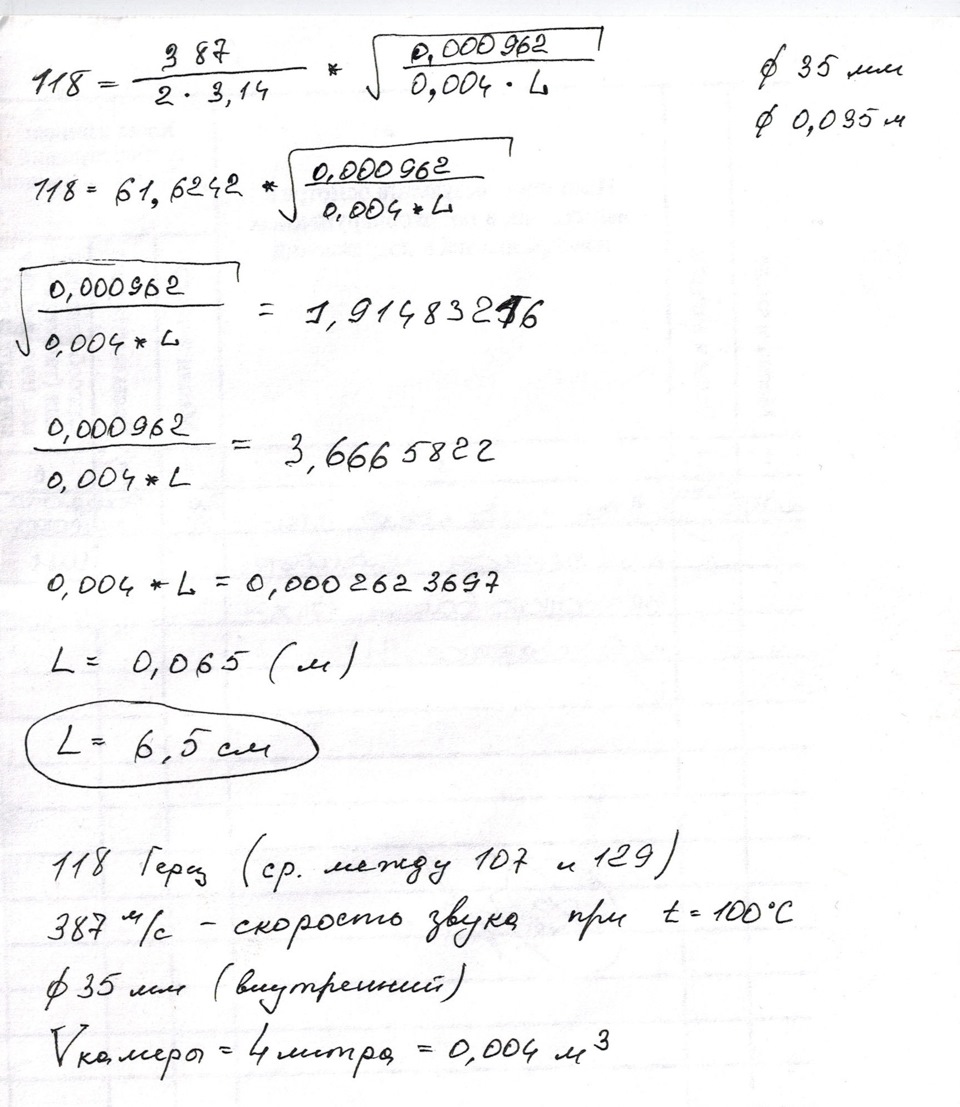 118 = 387 / (2 · 3,14) * √(0,000962 / (0,004 · L))
ϕ 35 мм
ϕ 0,035 м
118 = 61,6242 * √(0,000962 / (0,004 * L))
√(0,000962 / (0,004 * L)) = 1,91483276
0,000962 / (0,004 * L) = 3,6665822
0,004 * L = 0,0002623697
L = 0,065 (м)
L = 6,5 см
118 Герц (ср. между 107 и 129)
387 м/с - скорость звука при t = 100°C
ϕ 35 мм (внутренний)
V камеры = 4 литра = 0,004 м³